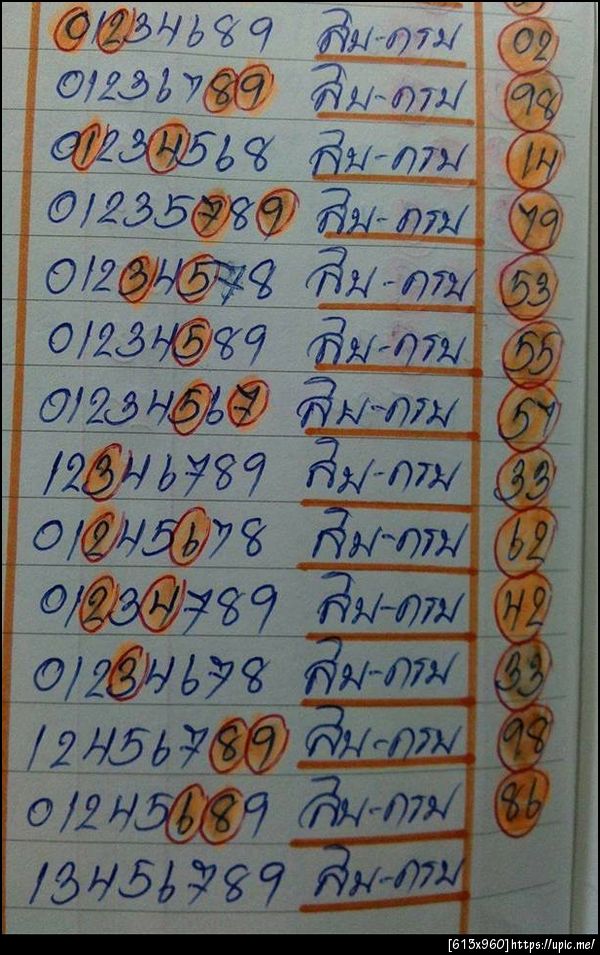 01234689 สิบ-ครบ 02
01236789 สิบ-ครบ 98
01234568 สิบ-ครบ 14
01235789 สิบ-ครบ 79
01234578 สิบ-ครบ 53
01234589 สิบ-ครบ 55
01234567 สิบ-ครบ 57
12346789 สิบ-ครบ 33
01245678 สิบ-ครบ 62
01234789 สิบ-ครบ 42
01234678 สิบ-ครบ 33
12456789 สิบ-ครบ 98
01245689 สิบ-ครบ 86
13456789 สิบ-ครบ
[615x960]https://upic.me/